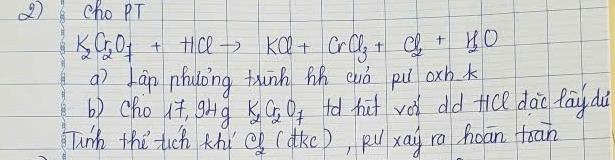 2) Cho PT
K₂Cr₂O₇ + HCl → KCl + CrCl₃ + Cl₂ + H₂O
a) Lập phương trình hh của pư oxh k
b) Cho 17,94g K₂Cr₂O₇ td hết với dd HCl đặc lấy dư
Tính thể tích khí Cl₂ (đkc), pư xảy ra hoàn toàn